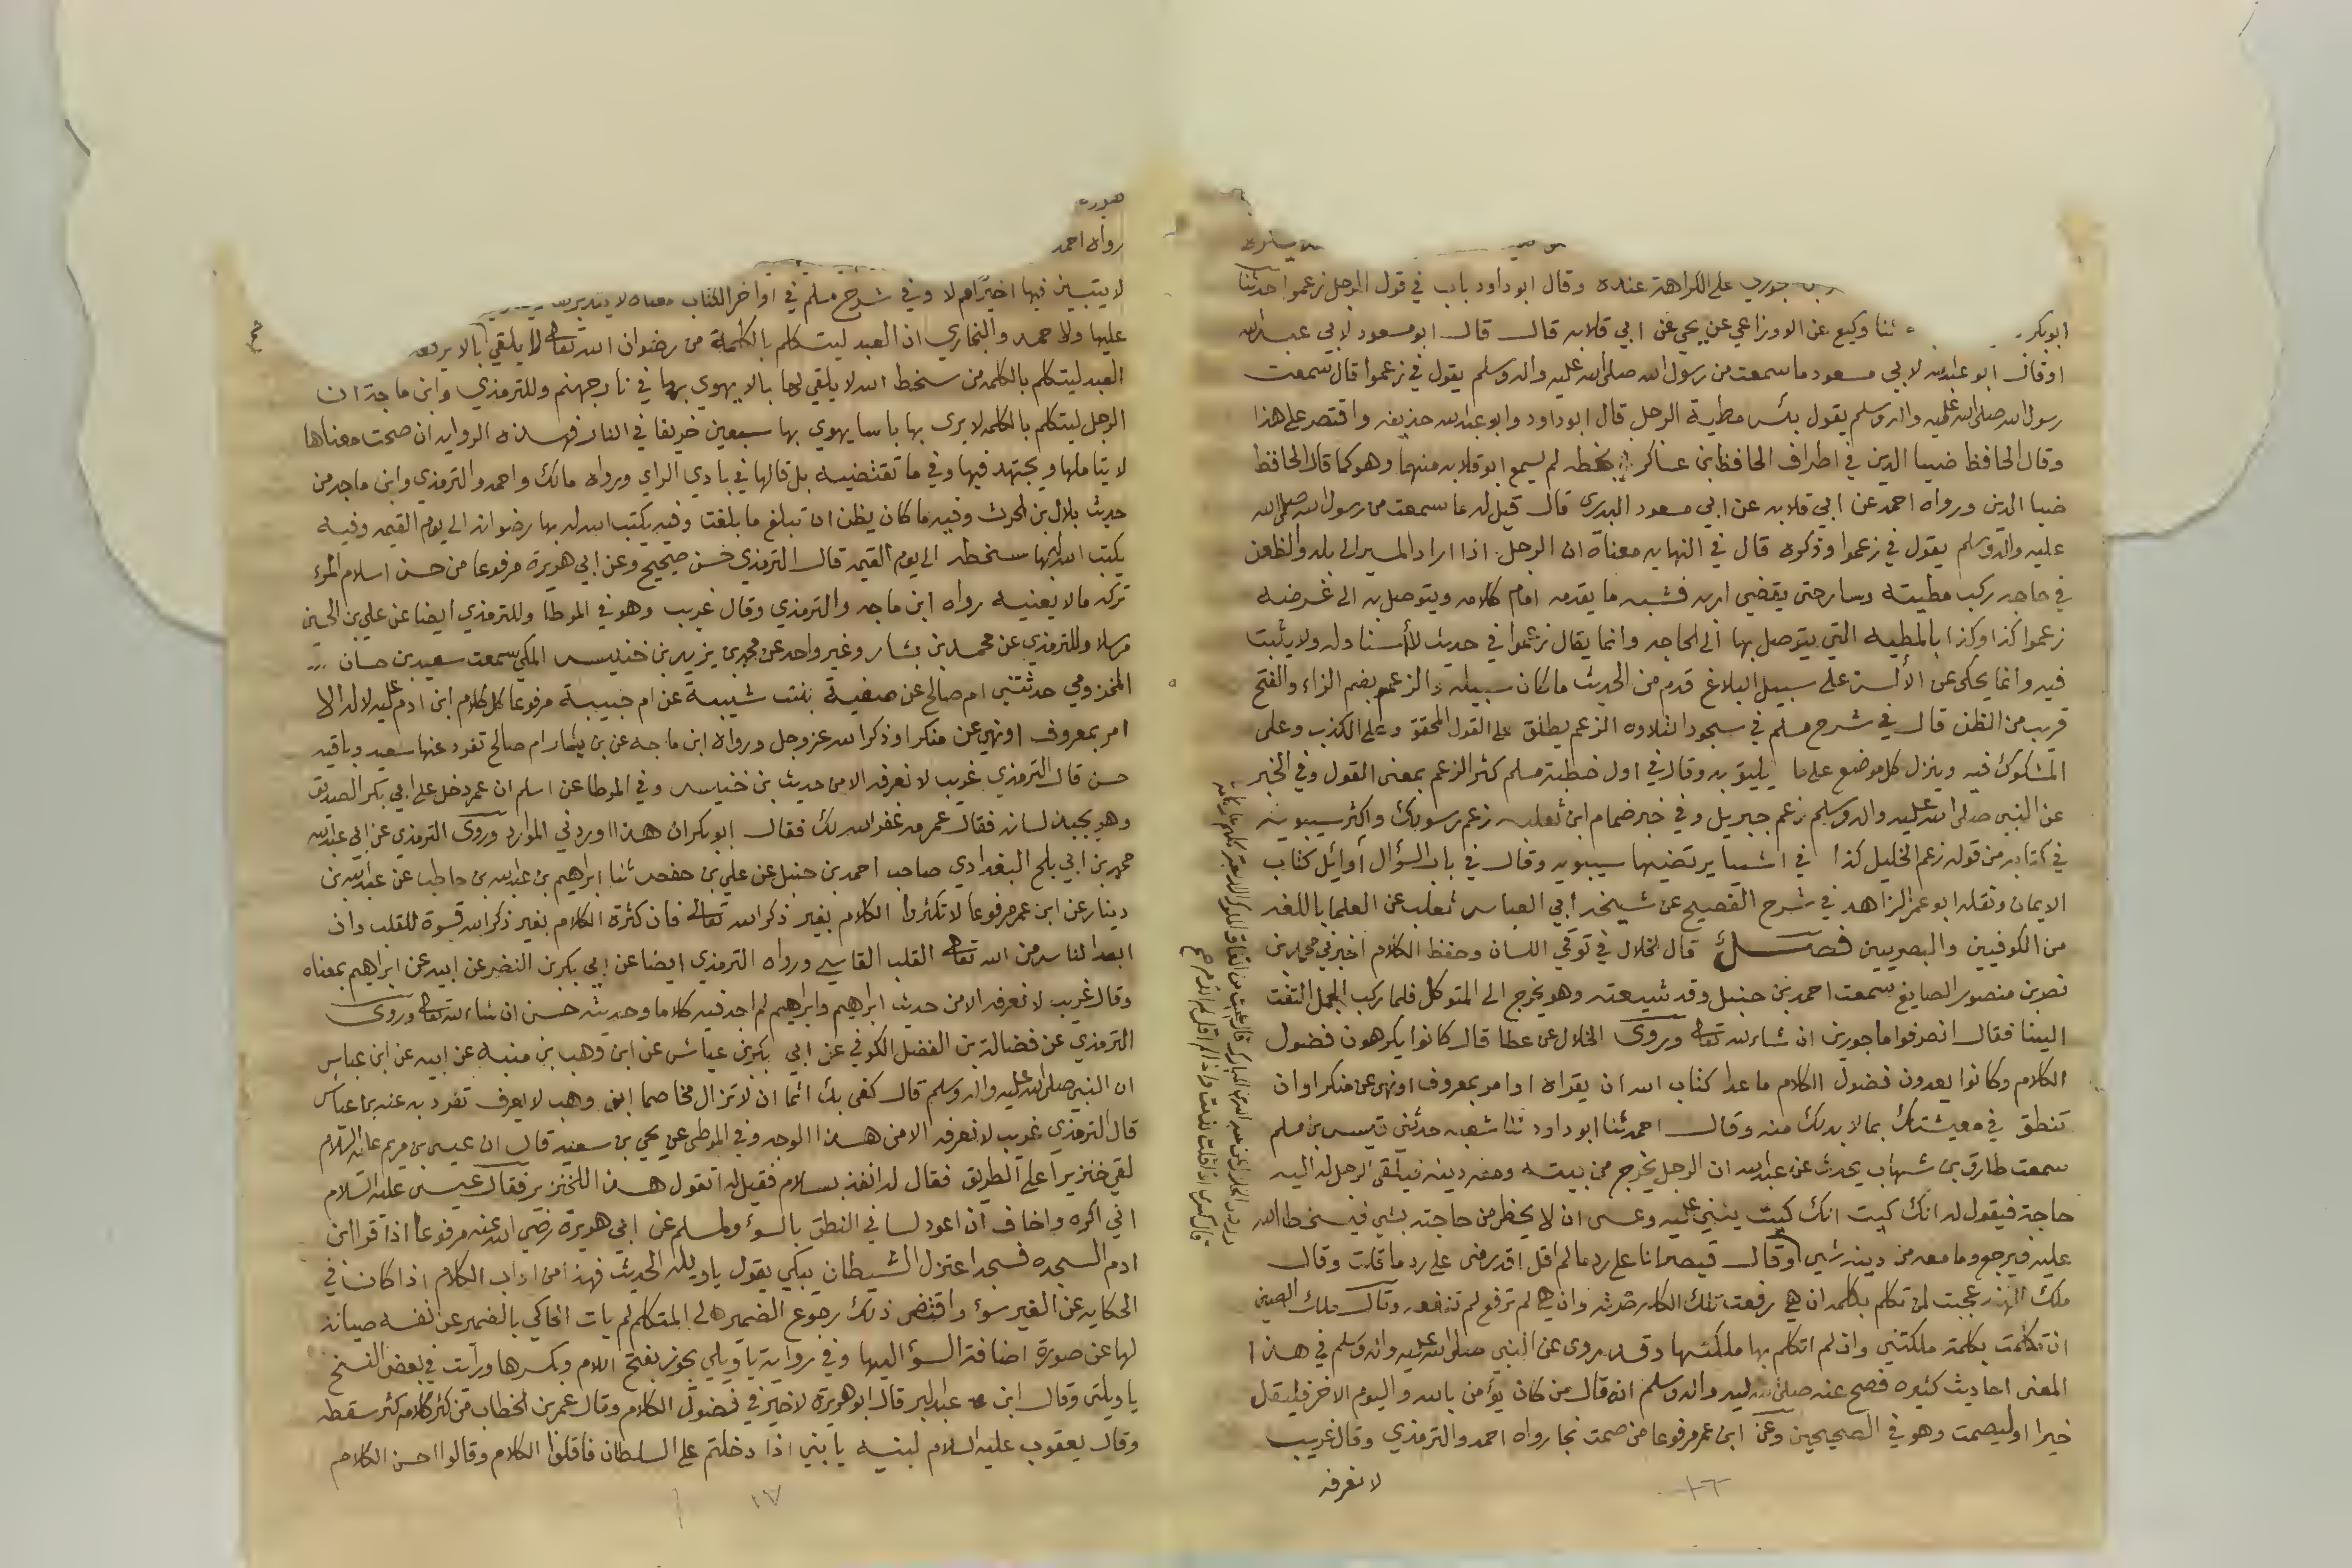 على الكراهة عنده وقال ابو داود باب في قول الرجل زعموا حدثنا
ابو بكر ثنا وكيع عن الاوزاعي عن يحيى عن ابي قلابه قال قال ابو مسعود لابي عبد الله
او قال ابو عبد الله لابي مسعود ما سمعت من رسول الله صلى الله عليه واله وسلم يقول في زعموا قال سمعت
رسول الله صلى الله عليه واله وسلم يقول بئس مطية الرجل قال ابو داود وابو عبد الله حذيفه واقتصر على هذا
وقال الحافظ ضيا الدين في اطراف الحافظ ابن عساكر بخطه لم يسمع ابو قلابه منهما وهو كما قال الحافظ
ضيا الدين ورواه احمد عن ابي قلابه عن ابي مسعود البدري قال قيل له ما سمعت من رسول الله صلى الله
عليه واله وسلم يقول في زعموا وذكره قال في النهايه معناه ان الرجل اذا اراد المسير الى بلد والظعن
في حاجه ركب مطيته وسار حتى يقضي اربه فشبه ما يقدمه امام كلامه ويتوصل به الى غرضه
زعموا كذا وكذا بالمطيه التي يتوصل بها الى الحاجه وانما يقال زعموا في حديث لا سناد له ولا يثبت
فيه وانما يحكى عن الألسن على سبيل البلاغ فذم من الحديث ما كان سبيله والزعم بضم الزاء والفتح
قريب من الظن قال في شرح مسلم في سجود التلاوه الزعم يطلق على القول المحقق وعلى الكذب وعلى
المشكوك فيه وينزل كل موضع على ما يليق به وقال في اول خطبة مسلم كثر الزعم بمعنى القول وفي الخبر
عن النبي صلى الله عليه واله وسلم زعم جبريل وفي خبر ضمام ابن ثعلبه زعم رسولك واكثر سيبويه
في كتابه من قوله زعم الخليل كذا في اشيا يرتضيها سيبويه وقال في باب السؤال أوائل كتاب
الايمان ونقله ابو عمر الزاهد في شرح الفصيح عن شيخه ابي العباس ثعلب عن العلما باللغه
من الكوفيين والبصريين فصل قال الخلال في توقي اللسان وحفظ الكلام اخبرني محمد بن
نصر بن منصور الصايغ سمعت احمد بن حنبل وقد شيعته وهو يخرج الى المتوكل فلما ركب الجمل التفت
الينا فقال انصرفوا ماجورين ان شاء الله تعالى وروى الخلال عن عطا قال كانوا يكرهون فضول
الكلام وكانوا يعدون فضول الكلام ما عدا كتاب الله ان يقراه او امر بمعروف او نهي عن منكر او ان
تنطق في معيشتك بما لا بد لك منه وقال احمد ثنا ابو داود ثنا شعبه حدثني قيس بن مسلم
سمعت طارق بن شهاب يحدث عن عبد الله ان الرجل يخرج من بيته ومعه دينه فيلقى الرجل له اليه
حاجة فيقول له انك كيت انك كيت يثني عليه وعسى ان لا يحظى من حاجته بشي فيسخط الله
عليه فيرجع وما معه من دينه شي وقال قيصر انا على رد ما لم اقل اقدر مني على رد ما قلت وقال
ملك الهند عجبت لمن تكلم بكلمه ان هي رفعت تلك الكلمه ضرته وان هي لم ترفع لم تنفعه وقال ملك الصين
ان تكلمت بكلمة ملكتني وان لم اتكلم بها ملكتها وقد روي عن النبي صلى الله عليه واله وسلم في هذا
المعنى احاديث كثيره فصح عنه صلى الله عليه واله وسلم انه قال من كان يؤمن بالله واليوم الاخر فليقل
خيرا او ليصمت وهو في الصحيحين وعن ابن عمر مرفوعا من صمت نجا رواه احمد والترمذي وقال غريب
لا نعرفه
١٦
رواه احمد
لا يتبين فيها اخير ام لا وفي شرح مسلم في اواخر الكتاب معناه لا يتدبر
عليها ولاحمد والبخاري ان العبد ليتكلم بالكلمة من رضوان الله تعالى لا يلقي لها بالا
العبد ليتكلم بالكلمه من سخط الله لا يلقي لها بالا يهوي بها في نار جهنم وللترمذي وابن ماجة ان
الرجل ليتكلم بالكلمه لا يرى بها باسا يهوي بها سبعين خريفا في النار فهذه الروايه ان صحت معناها
لا يتاملها ويجتهد فيها وفي ما تقتضيه بل قالها في بادي الراي ورواه مالك واحمد والترمذي وابن ماجه من
حديث بلال بن الحرث وفيه ما كان يظن ان تبلغ ما بلغت وفيه يكتب الله له بها رضوانه الى يوم القيمه وفيه
يكتب الله بها سخطه الى يوم القيمه قال الترمذي حسن صحيح وعن ابي هريرة مرفوعا من حسن اسلام المرء
تركه ما لا يعنيه رواه ابن ماجه والترمذي وقال غريب وهو في الموطا وللترمذي ايضا عن علي بن الحسين
مرسلا وللترمذي عن محمد بن بشار وغير واحد عن محمد بن يزيد بن خنيس المكي سمعت سعيد بن حسان
المخزومي حدثتني ام صالح عن صفية بنت شيبة عن ام حبيبة مرفوعا كل كلام ابن ادم عليه لا له الا
امر بمعروف او نهي عن منكر او ذكر الله عز وجل ورواه ابن ماجه عن بن بشار ام صالح تفرد عنها سعيد وباقيه
حسن قال الترمذي غريب لا نعرفه الا من حديث بن خنيس وفي الموطا عن اسلم ان عمر دخل على ابي بكر الصديق
وهو يجبذ لسانه فقال عمر مه غفر الله لك فقال ابو بكر ان هذا اوردني الموارد وروى الترمذي عن ابي عبد الله
محمد بن ابي بلج البغدادي صاحب احمد بن حنبل عن علي بن حفص ثنا ابراهيم بن عبد الله بن حاطب عن عبد الله بن
دينار عن ابن عمر مرفوعا لا تكثروا الكلام بغير ذكر الله تعالى فان كثرة الكلام بغير ذكر الله قسوة للقلب وان
ابعد الناس من الله تعالى القلب القاسي ورواه الترمذي ايضا عن ابي بكر بن النضر عن ابيه عن ابراهيم بمعناه
وقال غريب لا نعرفه الا من حديث ابراهيم وابراهيم لم اجد فيه كلاما وحديثه حسن ان شاء الله تعالى وروى
الترمذي عن فضالة بن الفضل الكوفي عن ابي بكر بن عياش عن ابن وهب بن منبه عن ابيه عن ابن عباس
ان النبي صلى الله عليه واله وسلم قال كفى بك اثما ان لا تزال مخاصما ابن وهب لا يعرف تفرد به عنه بن عياش
قال الترمذي غريب لا نعرفه الا من هذا الوجه وفي الموطى عن يحي بن سعيد قال ان عيسى بن مريم عليه السلام
لقي خنزيرا على الطريق فقال له انفذ بسلام فقيل له اتقول هذا للخنزير فقال عيسى عليه السلام
اني اكره واخاف ان اعود لساني النطق بالسوء ولمسلم عن ابي هريرة رضي الله عنه مرفوعا اذا قرا ابن
ادم السجده فسجد اعتزل الشيطان يبكي يقول يا ويله الحديث فهذا من اداب الكلام اذا كان في
الحكايه عن الغير سوء واقتضى ذلك رجوع الضمير الى المتكلم لم يات الحاكي بالضمير عن نفسه صيانه
لها عن صورة اضافة السوء اليها وفي رواية يا ويلي يجوز بفتح اللام وبكسرها ورايت في بعض النسخ
يا ويلتي وقال ابن عبد البر قال ابو هريرة لا خير في فضول الكلام وقال عمر بن الخطاب من كثر كلامه كثر سقطه
وقال يعقوب عليه السلام لبنيه يا بني اذا دخلتم على السلطان فاقلوا الكلام وقالوا احسن الكلام
١٧